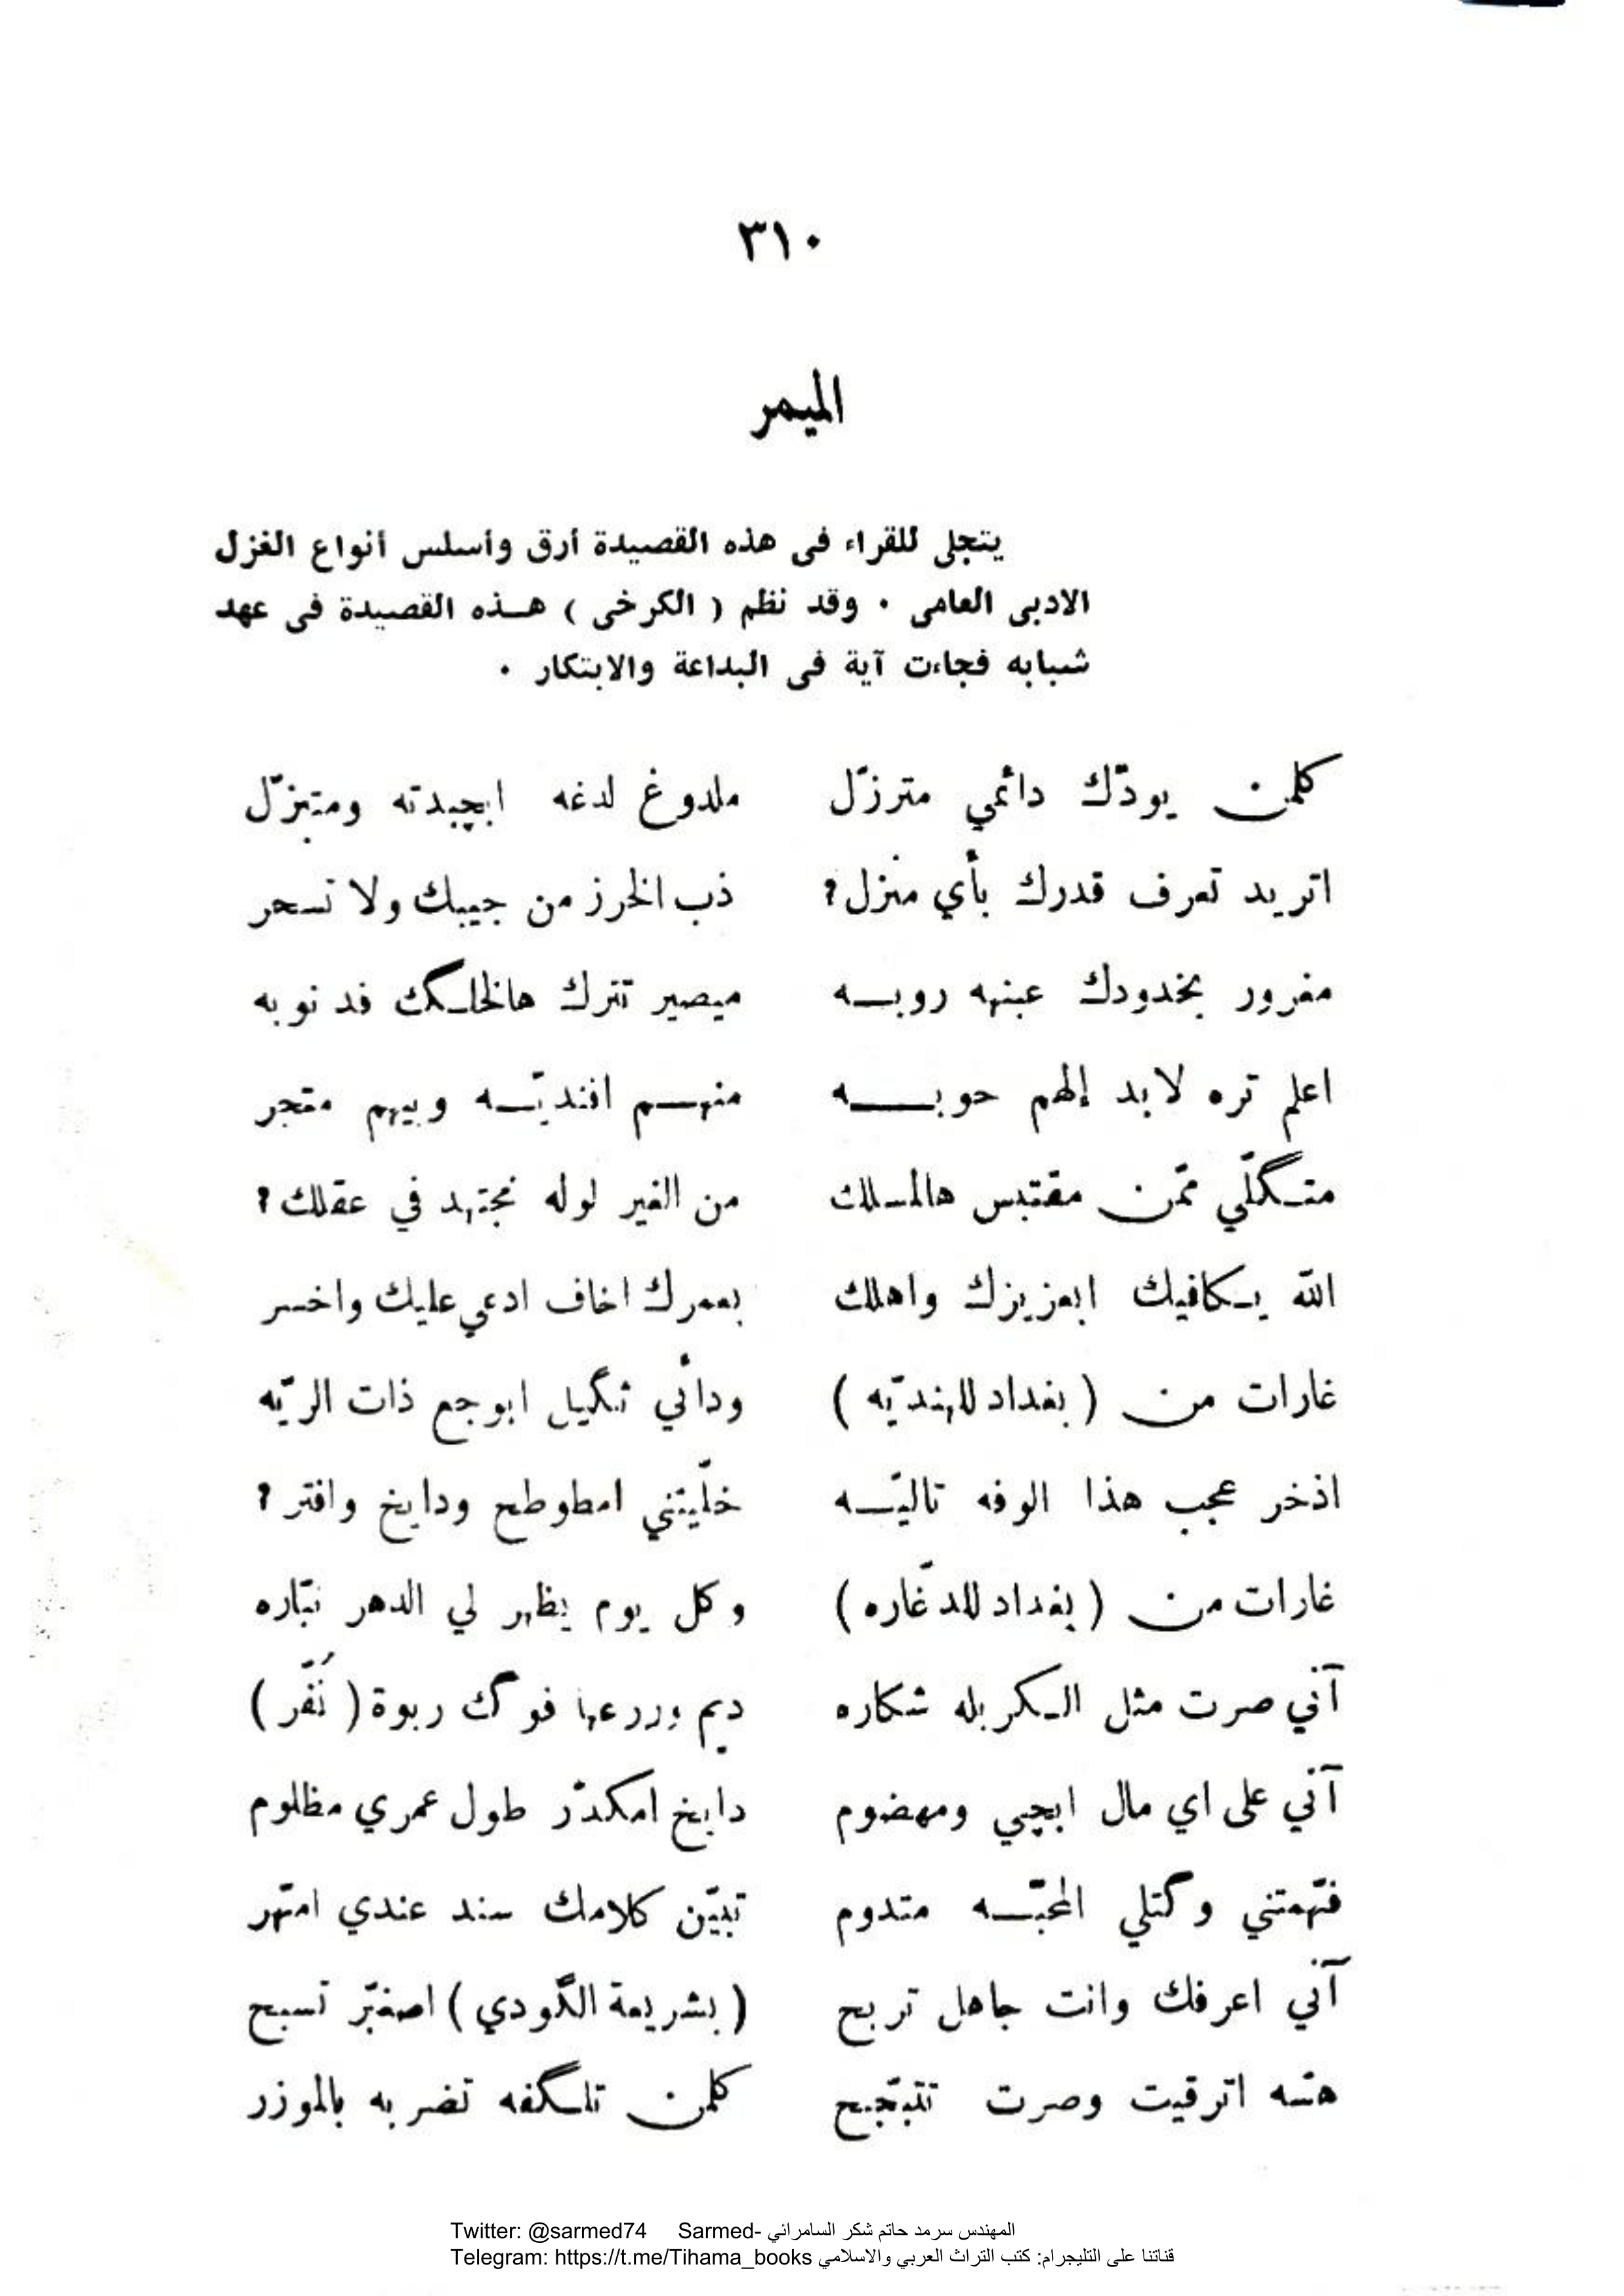 ٣١٠
الميمر
يتجلى للقراء فى هذه القصيدة أرق وأسلس أنواع الغزل
الادبى العامى . وقد نظم ( الكرخى ) هـذه القصيدة فى عهد
شبابه فجاءت آية فى البداعة والابتكار .
كلمن يودّك دائمي مترزّل ملدوغ لدغه ابچبدته ومتبزّل
اتريد تعرف قدرك بأي منزل؟ ذب الخرز من جيبك ولا تسحر
مغرور بخدودك عبنهه روبـه ميصير تترك هالخلـگك فد نوبه
اعلم تره لابد إلهم حوبـــه منهـم افنديّـه وبيهم متجر
متـگلّي ممّن مقتبس هالمسلك من الغير لوله نجتهد في عقلك؟
الله يـكافيك ابعزيزك واهلك بعمرك اخاف ادعي عليك واخسر
غارات من ( بغداد للهنديّه ) ودائي ثگيل ابوجع ذات الريّه
اذخر عجب هذا الوفه تاليّـه خلّيتني امطوطح ودايخ وافتر؟
غارات من ( بغداد للدغّاره ) وكل يوم يظهر لي الدهر نبّاره
آني صرت مثل الـكربله شكاره ديم وزرعها فوگ ربوة ( نُفّر )
آني على اي مال ابچي ومهضوم دايخ امكدّر طول عمري مظلوم
فهّمتني وگتلي المحبّـه متدوم تبيّن كلامك سند عندي امتهر
آني اعرفك وانت جاهل تربح ( بشريعة الگودي ) اصغيّر تسبح
هسّه اترقيت وصرت تتبجّح كلمن تلـگفه تضربه بالموزر
Twitter: @sarmed74 Sarmed- المهندس سرمد حاتم شكر السامرائي
Telegram: https://t.me/Tihama_books قناتنا على التليجرام: كتب التراث العربي والاسلامي